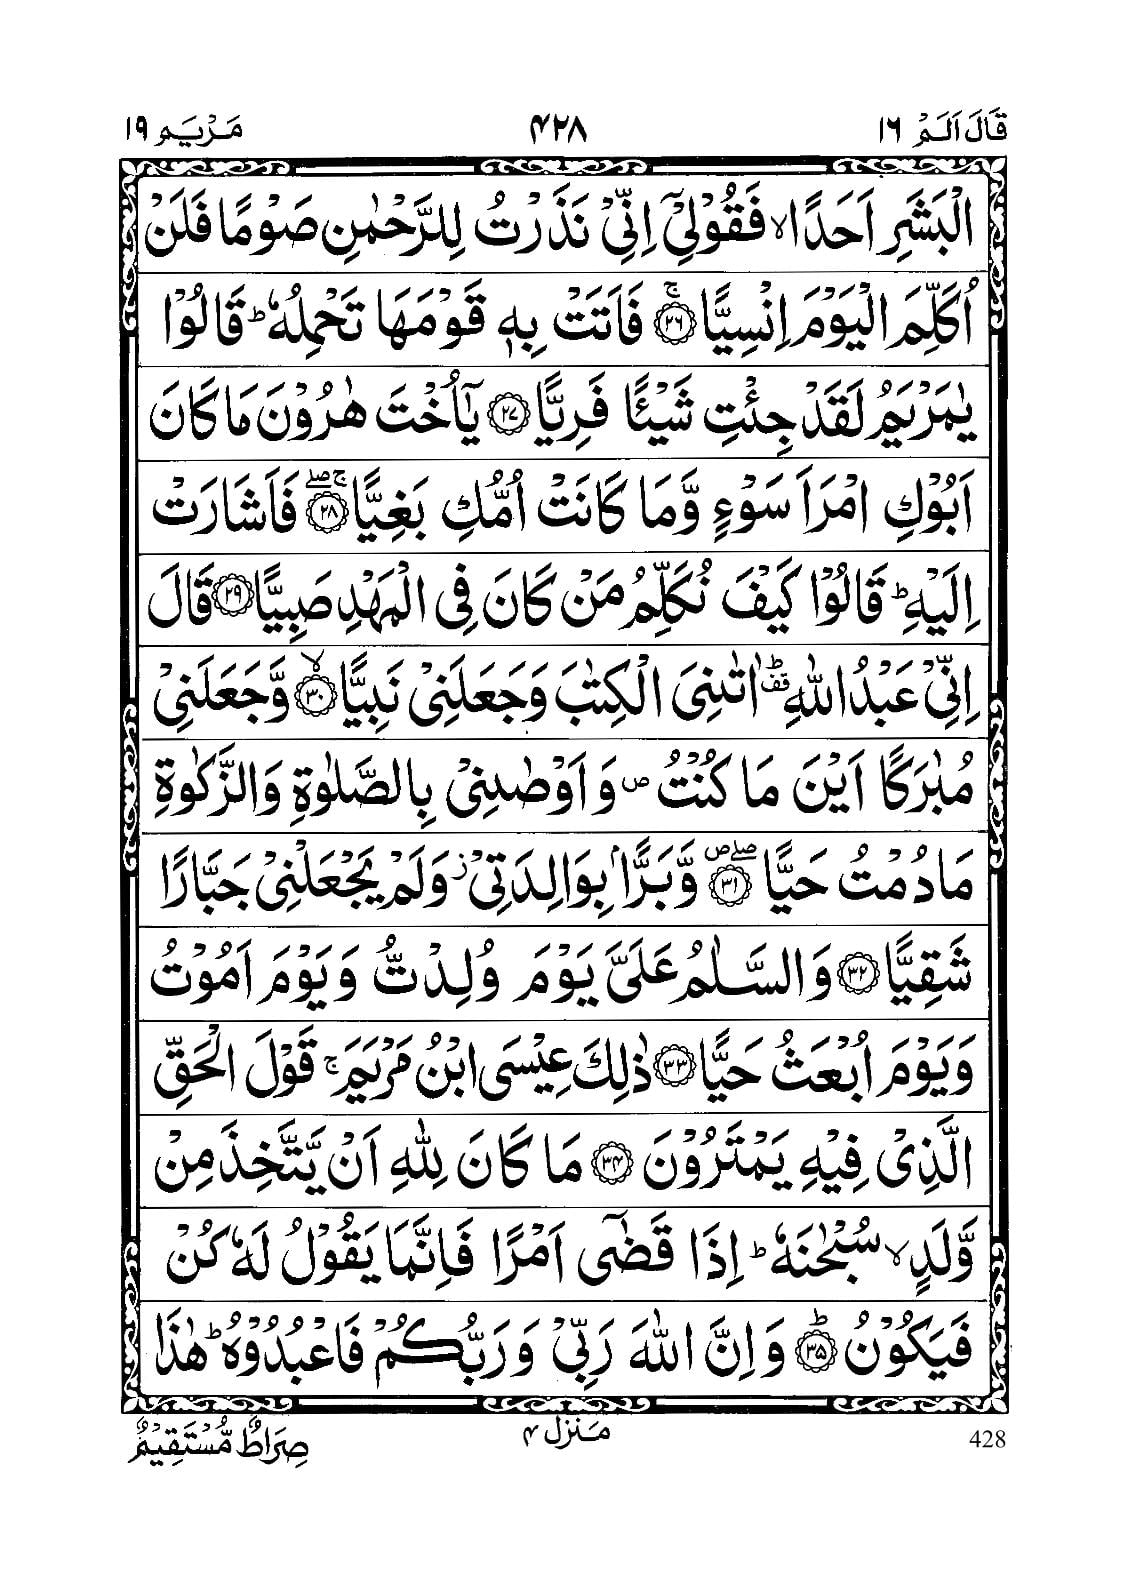 قَالَ اَلَمْ ١٦ ٤٢٨ مَرْيَم ١٩
الْبَشَرِ اَحَدًا ۙ فَقُوْلِيْۤ اِنِّيْ نَذَرْتُ لِلرَّحْمٰنِ صَوْمًا فَلَنْ
اُكَلِّمَ الْيَوْمَ اِنْسِيًّا ۚ‏﴿۲۶﴾ فَاَتَتْ بِهٖ قَوْمَهَا تَحْمِلُهٗ ؕ قَالُوْا
يٰمَرْيَمُ لَقَدْ جِئْتِ شَيْـًٔا فَرِيًّا ﴿۲۷﴾ يٰۤاُخْتَ هٰرُوْنَ مَا كَانَ
اَبُوْكِ امْرَاَ سَوْءٍ وَّمَا كَانَتْ اُمُّكِ بَغِيًّا ۖۚ ﴿۲۸﴾ فَاَشَارَتْ
اِلَيْهِ ؕ قَالُوْا كَيْفَ نُكَلِّمُ مَنْ كَانَ فِي الْمَهْدِ صَبِيًّا ﴿۲۹﴾ قَالَ
اِنِّيْ عَبْدُ اللّٰهِ ؕ قف اٰتٰىنِيَ الْكِتٰبَ وَجَعَلَنِيْ نَبِيًّا ۙ ﴿۳۰﴾ وَّجَعَلَنِيْ
مُبٰرَكًا اَيْنَ مَا كُنْتُ ص وَاَوْصٰنِيْ بِالصَّلٰوةِ وَالزَّكٰوةِ
مَا دُمْتُ حَيًّا ۖ ص ﴿۳۱﴾ وَّبَرًّاۢ بِوَالِدَتِيْ ز وَلَمْ يَجْعَلْنِيْ جَبَّارًا
شَقِيًّا ﴿۳۲﴾ وَالسَّلٰمُ عَلَيَّ يَوْمَ وُلِدْتُّ وَيَوْمَ اَمُوْتُ
وَيَوْمَ اُبْعَثُ حَيًّا ﴿۳۳﴾ ذٰلِكَ عِيْسَى ابْنُ مَرْيَمَ ۚ قَوْلَ الْحَقِّ
الَّذِيْ فِيْهِ يَمْتَرُوْنَ ﴿۳۴﴾ مَا كَانَ لِلّٰهِ اَنْ يَّتَّخِذَ مِنْ
وَّلَدٍ ۙ سُبْحٰنَهٗ ؕ اِذَا قَضٰۤى اَمْرًا فَاِنَّمَا يَقُوْلُ لَهٗ كُنْ
فَيَكُوْنُ ؕ ﴿۳۵﴾ وَاِنَّ اللّٰهَ رَبِّيْ وَرَبُّكُمْ فَاعْبُدُوْهُ ؕ هٰذَا
428 مَنْزِل ٤ صِرَاطٌ مُّسْتَقِيْمٌ